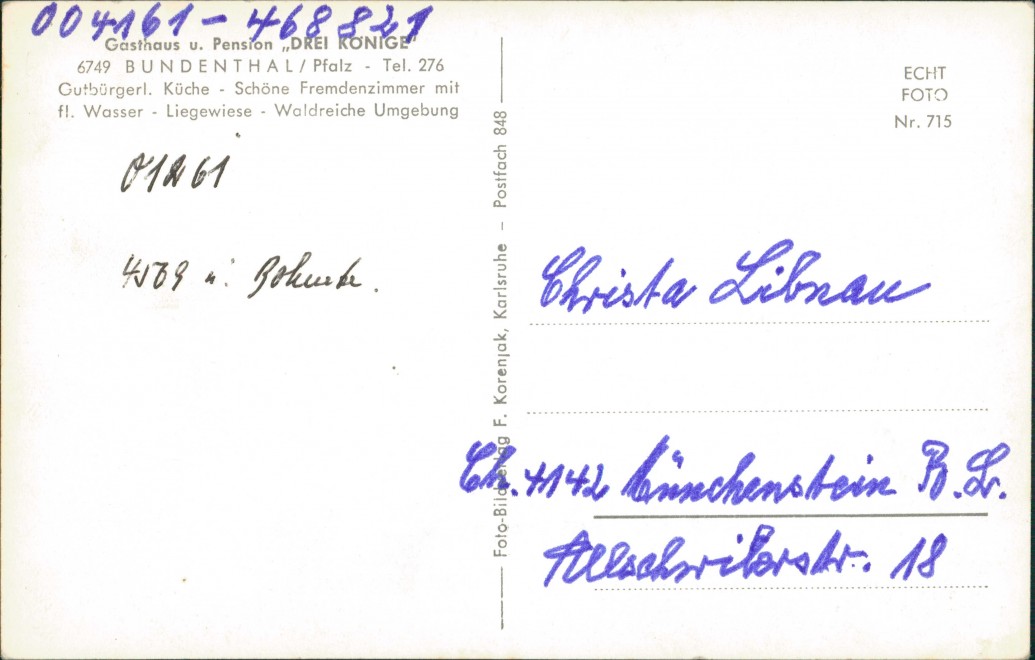 004161-468821
Gasthaus u. Pension „DREI KÖNIGE"
6749 BUNDENTHAL/Pfalz - Tel. 276
Gutbürgerl. Küche - Schöne Fremdenzimmer mit
fl. Wasser - Liegewiese - Waldreiche Umgebung
4509 n.
Foto-Bildverlag F. Korenjak, Karlsruhe - Postfach 848
ECHT
FOTO
Nr. 715
Christa Libnau
Ch. 4142 Münchenstein B.L.
Allschwilerstr. 18